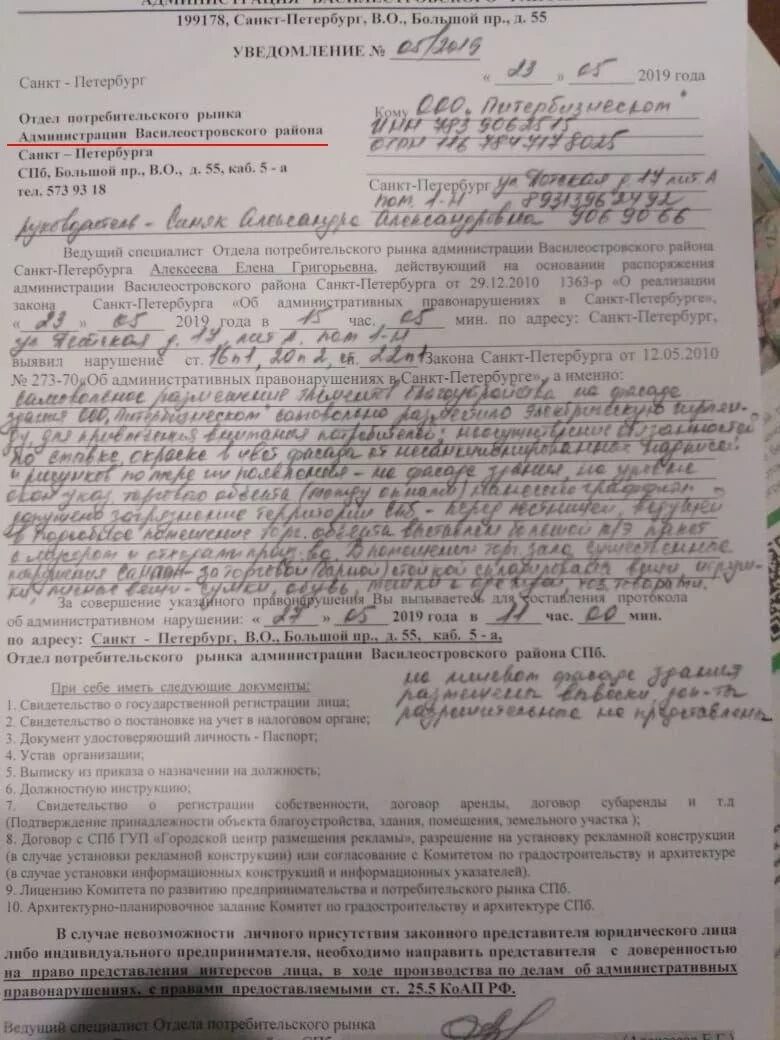 АДМИНИСТРАЦИЯ ВАСИЛЕОСТРОВСКОГО
199178, Санкт-Петербург, В.О., Большой пр., д. 55
УВЕДОМЛЕНИЕ № 05/2019
Санкт - Петербург
« 23 » 05 2019 года
Отдел потребительского рынка
Администрации Василеостровского района
Санкт – Петербурга
СПб, Большой пр., В.О., д. 55, каб. 5 - а
тел. 573 93 18
Кому ООО "Питербизнеском"
ИНН 7839062515
ОГРН 1167847178025
Санкт-Петербург ул Детская д 17 лит А
пом. 1-Н 89313962492
руководитель - Саняк Александра Александровна 9069066
Ведущий специалист Отдела потребительского рынка администрации Василеостровского района
Санкт-Петербурга Алексеева Елена Григорьевна, действующий на основании распоряжения
администрации Василеостровского района Санкт-Петербурга от 29.12.2010 1363-р «О реализации
закона Санкт-Петербурга «Об административных правонарушениях в Санкт-Петербурге»,
« 23 » 05 2019 года в 15 час. 05 мин. по адресу: Санкт-Петербург,
ул Детская д. 17, лит А. пом 1-Н
выявил нарушение ст. 16п1, 20п2, ст. 22п1 Закона Санкт-Петербурга от 12.05.2010
№ 273-70 «Об административных правонарушениях в Санкт-Петербурге», а именно:
самовольное размещение элементов благоустройства на фасаде
здания ООО "Питербизнеском" самовольно разместило электрическую гирлян-
ду для привлечения внимания потребителей; неосуществление обязанностей
по очистке, окраске в цвет фасада от несанкционированных надписей
и рисунков по мере их появления - на фасаде здания, на уровне
окон указ. торгового объекта (между окнами) нанесено граффити
допущено загрязнение территории СПб - перед лестницей, ведущей
в подсобное помещение торг. объекта выставлен большой п/э пакет
с мусором и отходами произ-ва. В помещении торг. зала существенное
нарушения СанПин - за торговой (барной) стойкой складировались вещи, игруш-
ки, личные вещи - сумки, обувь, мешки с одеждой, хоз. товарами.
За совершение указанного правонарушения Вы вызываетесь для составления протокола
об административном нарушении: « 27 » 05 2019 года в 11 час. 00 мин.
по адресу: Санкт - Петербург, В.О., Большой пр., д. 55, каб. 5 - а,
Отдел потребительского рынка администрации Василеостровского района СПб.
на лицевом фасаде здания
размещены вывески, док-ты
разрешительные не представлены
При себе иметь следующие документы:
1. Свидетельство о государственной регистрации лица;
2. Свидетельство о постановке на учет в налоговом органе;
3. Документ удостоверяющий личность - Паспорт;
4. Устав организации;
5. Выписку из приказа о назначении на должность;
6. Должностную инструкцию;
7. Свидетельство о регистрации собственности, договор аренды, договор субаренды и т.д
(Подтверждение принадлежности объекта благоустройства, здания, помещения, земельного участка );
8. Договор с СПб ГУП «Городской центр размещения рекламы», разрешение на установку рекламной конструкции
(в случае установки рекламной конструкции) или согласование с Комитетом по градостроительству и архитектуре
(в случае установки информационных конструкций и информационных указателей).
9. Лицензию Комитета по развитию предпринимательства и потребительского рынка СПб.
10. Архитектурно-планировочное задание Комитет по градостроительству и архитектуре СПб.
В случае невозможности личного присутствия законного представителя юридического лица
либо индивидуального предпринимателя, необходимо направить представителя с доверенностью
на право представления интересов лица, в ходе производства по делам об административных
правонарушениях, с правами предоставляемыми ст. 25.5 КоАП РФ.
Ведущий специалист Отдела потребительского рынка
СПб (Алексеева Е.Г.)